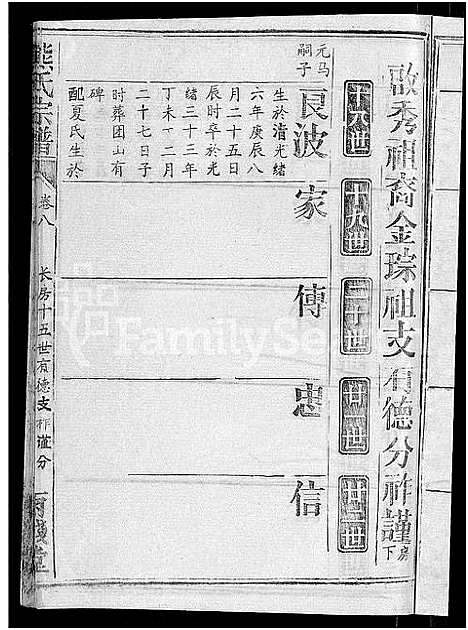 啟秀祖裔金琮祖支有德分祚謹房下
十八世
十九世
二十世
廿一世
廿二世
元马
嗣子
良波
家
傳
忠
信
生於清光緒
六年庚辰八
月二十五日
辰時卒於光
緒三十三年
丁未十二月
二十七日子
时葬团山有
碑
配夏氏生於
熊氏宗譜
卷八
长房十五世有德支祚谨分
FamilySearch